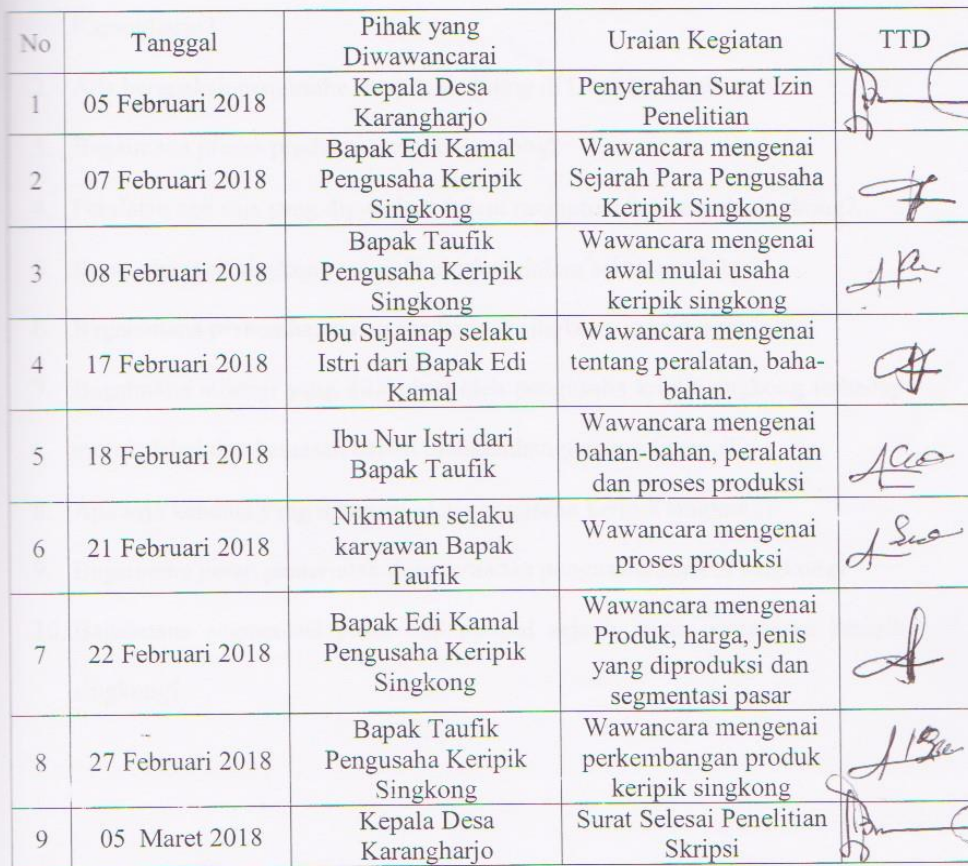 No Tanggal Pihak yang Diwawancarai Uraian Kegiatan TTD
1 05 Februari 2018 Kepala Desa Karangharjo Penyerahan Surat Izin Penelitian
2 07 Februari 2018 Bapak Edi Kamal Pengusaha Keripik Singkong Wawancara mengenai Sejarah Para Pengusaha Keripik Singkong
3 08 Februari 2018 Bapak Taufik Pengusaha Keripik Singkong Wawancara mengenai awal mulai usaha keripik singkong
4 17 Februari 2018 Ibu Sujainap selaku Istri dari Bapak Edi Kamal Wawancara mengenai tentang peralatan, baha-bahan.
5 18 Februari 2018 Ibu Nur Istri dari Bapak Taufik Wawancara mengenai bahan-bahan, peralatan dan proses produksi
6 21 Februari 2018 Nikmatun selaku karyawan Bapak Taufik Wawancara mengenai proses produksi
7 22 Februari 2018 Bapak Edi Kamal Pengusaha Keripik Singkong Wawancara mengenai Produk, harga, jenis yang diproduksi dan segmentasi pasar
8 27 Februari 2018 Bapak Taufik Pengusaha Keripik Singkong Wawancara mengenai perkembangan produk keripik singkong
9 05 Maret 2018 Kepala Desa Karangharjo Surat Selesai Penelitian Skripsi